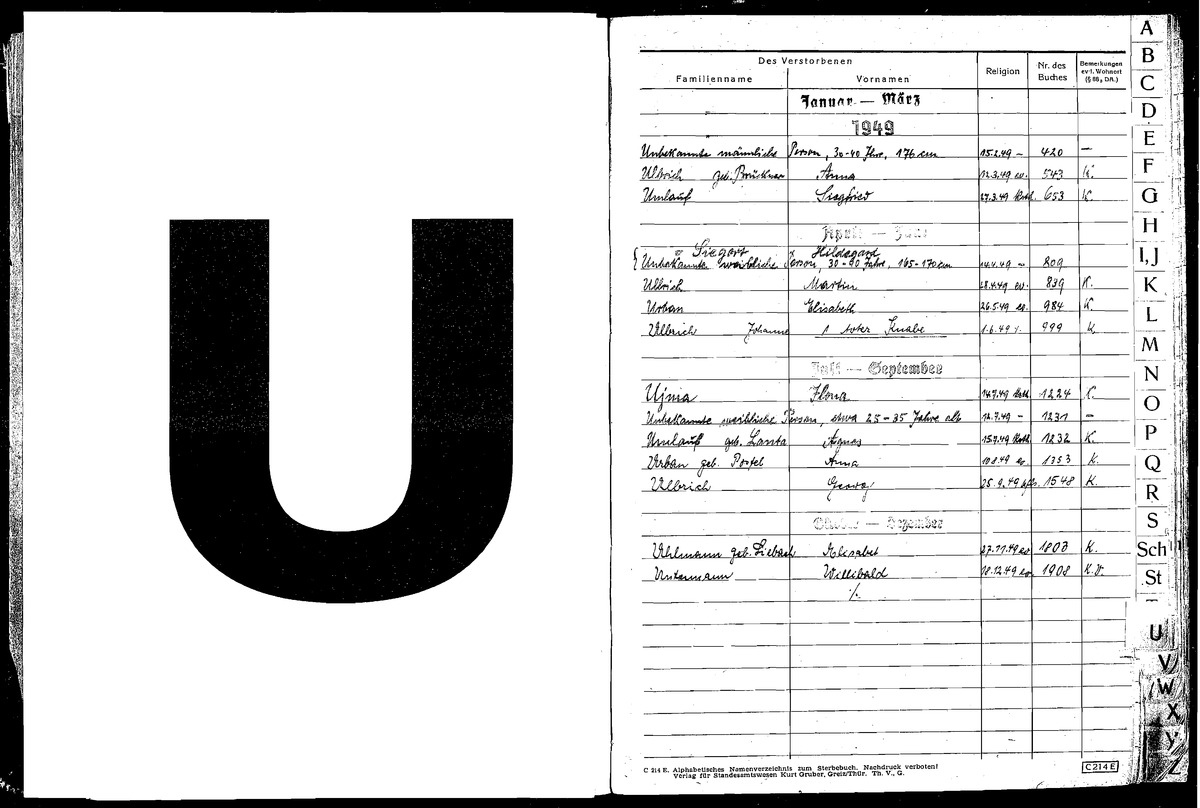 U
Des Verstorbenen
Familienname Vornamen Religion Nr. des Buches Bemerkungen evtl. Wohnort (§ 86, DA.)
Januar — März
1949
Unbekannte männliche Person, 30-40 Jhre, 176 cm 15.2.49 – 420 —
Ulbrich geb. Brückner Anna 12.3.49 ev. 543 K.
Umlauf Siegfried 27.3.49 kath. 653 K.
April — Juni
Siegert Hildegard
Unbekannte weibliche Person, 30-40 Jahre, 165-170 cm 14.4.49 – 809
Ulbrich Martin 28.4.49 ev. 839 K.
Urban Elisabeth 26.5.49 ev. 984 K.
Ulbrich Johanne 1 toter Knabe 1.6.49 999 K
Juli — September
Ujma Ilma 14.7.49 kath. 1224 K.
Unbekannte weibliche Person, etwa 25-35 Jahre alt 12.7.49 – 1231 —
Umlauf geb. Agnes 15.7.49 kath. 1232 K.
Urban geb. Postel Anna 10.8.49 ev. 1353 K.
Ulbrich Georg 25.9.49 1548 K.
Oktober — Dezember
Uhlmann geb. Liebach Elisabet 27.11.49 ev 1803 K.
Untermann Willibald 18.12.49 ev. 1908 K.V.
/.
C 214 E. Alphabetisches Namenverzeichnis zum Sterbebuch. Nachdruck verboten!
Verlag für Standesamtswesen Kurt Gruber, Greiz/Thür. Th. V., G.
C 214 E
A
B
C
D
E
F
G
H
I, J
K
L
M
N
O
P
Q
R
S
Sch
St
U
V
W
X
Y
Z